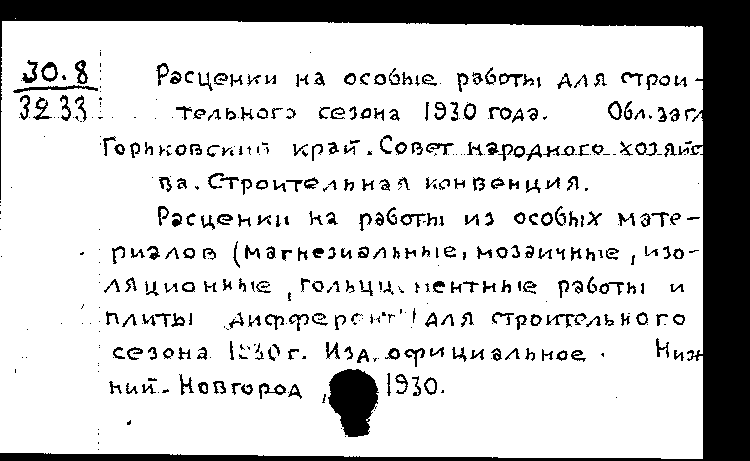 30.8
3233
Расценки на особые работы для строи-
тельного сезона 1930 года. Обл.загл
Горьковский край. Совет народного хозяйс
ва. Строительная конвенция.
Расценки на работы из особых мате-
риалов (магнезиальные, мозаичные, изо-
ляционные, гольцц. ментные работы и
плиты "дифферент") для строительного
сезона 1930 г. Изд. официальное. Ниж
ний-Новгород, 1930.